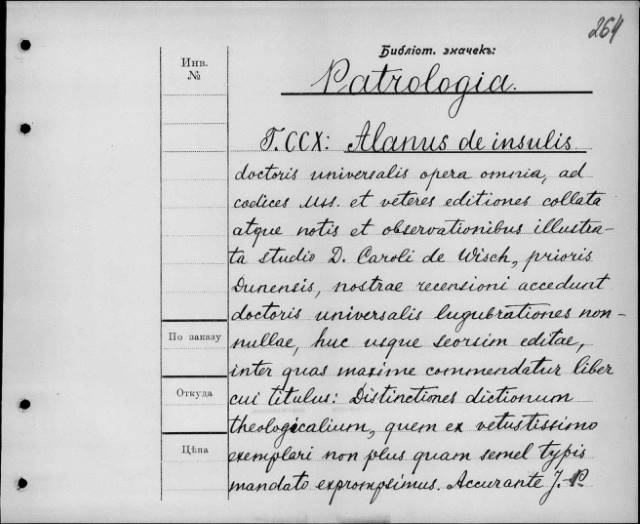 264
Библіот. значекъ:
Инв.
№
Patrologia.
T. CCX: Alanus de insulis
doctoris universalis opera omnia, ad
codices Mss. et veteres editiones collata
atque notis et observationibus illustra-
ta studio D. Caroli de Wisch, prioris
Dunensis, nostrae recensioni accedunt
doctoris universalis lugubrationes non-
nullae, huc usque seorsim editae,
По заказу
inter quas maxime commendatur liber
Откуда
cui titulus: Distinctiones dictionum
theologicalium, quem ex vetustissimo
Цѣна
exemplari non plus quam semel typis
mandato expromsimus. Accurante J.-P.